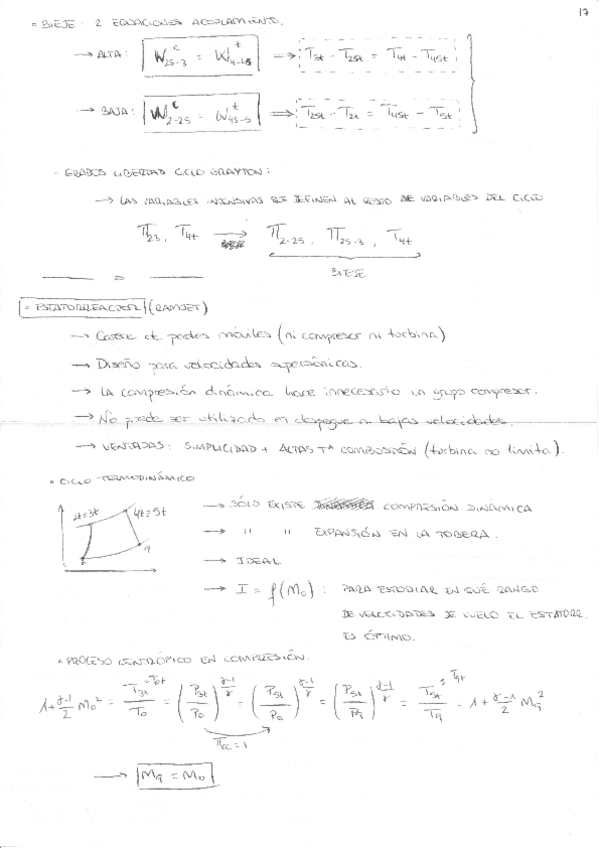 17
◦ BIEJE: 2 ECUACIONES ACOPLAMIENTO.
→ ALTA: W^c_{25-3} = W^t_{4-45} ⟹ T3t - T25t = T4t - T45t
→ BAJA: W^c_{2-25} = W^t_{45-5} ⟹ T25t - T2t = T45t - T5t
- GRADOS LIBERTAD CICLO BRAYTON:
→ LAS VARIABLES INTENSIVAS QUE DEFINEN AL RESTO DE VARIABLES DEL CICLO
Π23, T4t → Π2-25, Π25-3, T4t
BIEJE
=
◦ ESTATORREACTOR (RAMJET)
→ Carece de partes móviles (ni compresor ni turbina)
→ Diseño para velocidades supersónicas.
→ LA compresión dinámica hace innecesario un grupo compresor.
→ No puede ser utilizado en despegue ni bajas velocidades.
→ VENTAJAS: SIMPLICIDAD + ALTAS Tª COMBUSTIÓN (turbina no limita).
◦ CICLO TERMODINÁMICO
2t=3t 4t=5t
9
→ SÓLO EXISTE COMPRESIÓN DINÁMICA
→ " " EXPANSIÓN EN LA TOBERA.
→ IDEAL
→ I = f(M0): PARA ESTUDIAR EN QUÉ RANGO
DE VELOCIDADES DE VUELO EL ESTATORR.
ES ÓPTIMO.
◦ PROCESO ISENTRÓPICO EN COMPRESIÓN.
1 + (γ-1)/2 M0² = T3t/T0 = (P3t/P0)^{(γ-1)/γ} = (P5t/P0)^{(γ-1)/γ} = (P5t/P9)^{(γ-1)/γ} = T5t/T9 = 1 + (γ-1)/2 M9²
Πcc = 1
→ M9 = M0